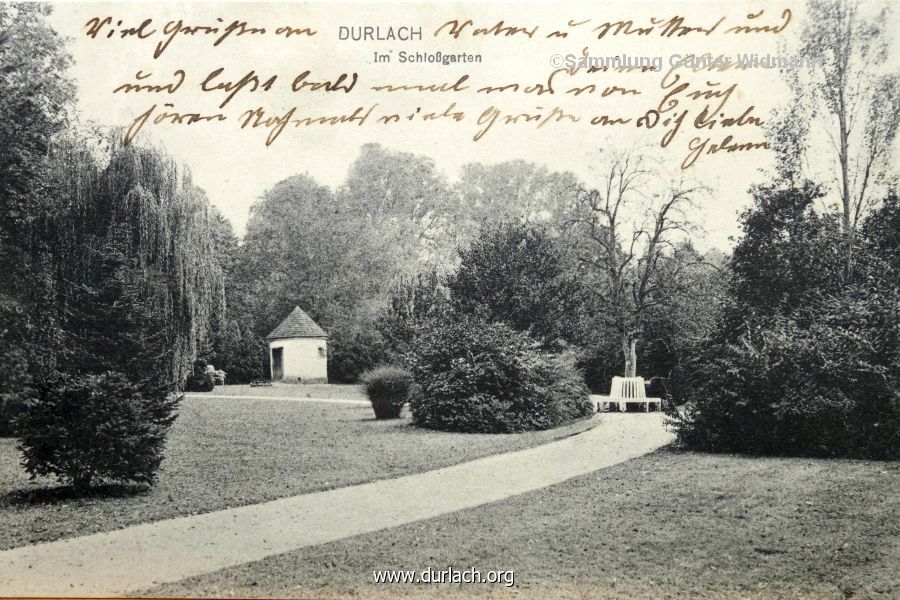 Viel Grüße an DURLACH Vater u Mutter und
Im Schloßgarten
©Sammlung Günter Widmann
und laßt bald mal was von Euch
hören Nochmals viele Grüße an Dich liebe
Helene
www.durlach.org